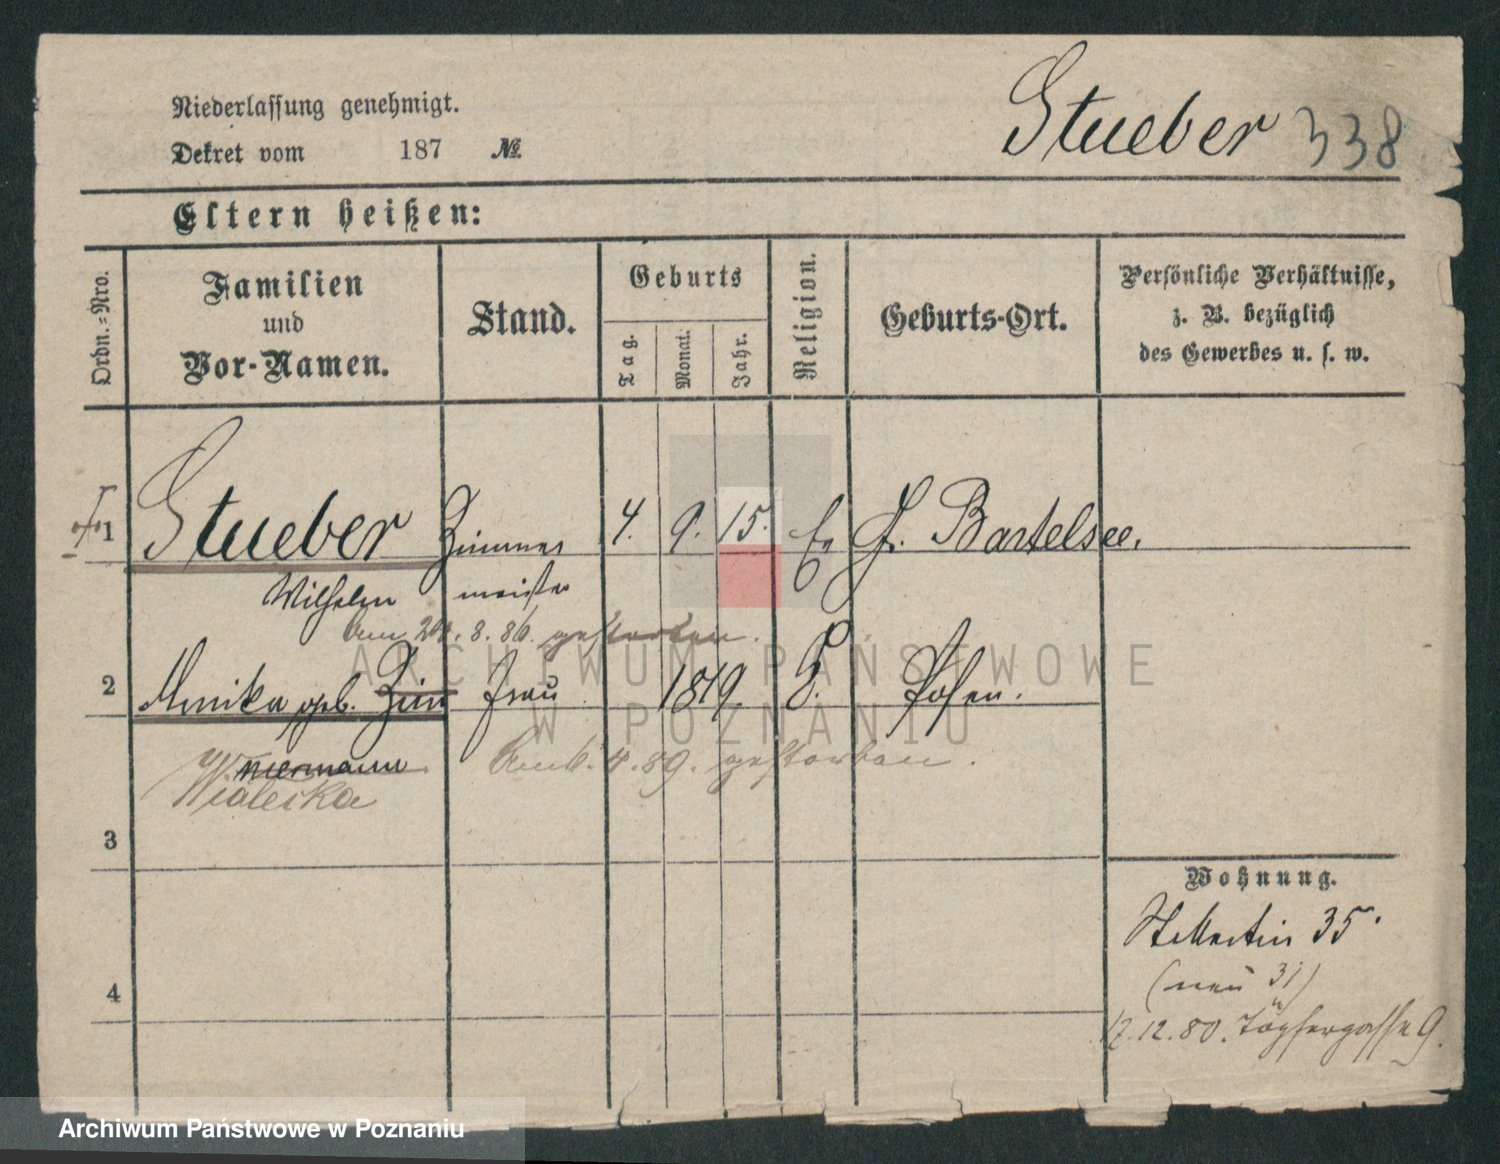 Niederlassung genehmigt.
Dekret vom 187 №
Stueber 338
Eltern heißen:
Ordn.-Nro.
Familien
und
Vor-Namen.
Stand.
Geburts
Tag.
Monat.
Jahr.
Religion.
Geburts-Ort.
Persönliche Verhältnisse,
z. B. bezüglich
des Gewerbes u. s. w.
1 Stueber Zimmer 4. 9. 15. Ev Gr. Bartelsee.
Wilhelm meister
Am 24. 8. 86. gestorben.
2 geb. Zim Frau 1819. Posen.
mermann
Am 6. 4. 89. gestorben.
3
Wohnung.
St Martin 35.
(neu 31)
4
17.12.80. Töpfergasse 9.
ARCHIWUM PAŃSTWOWE
W POZNANIU
Archiwum Państwowe w Poznaniu